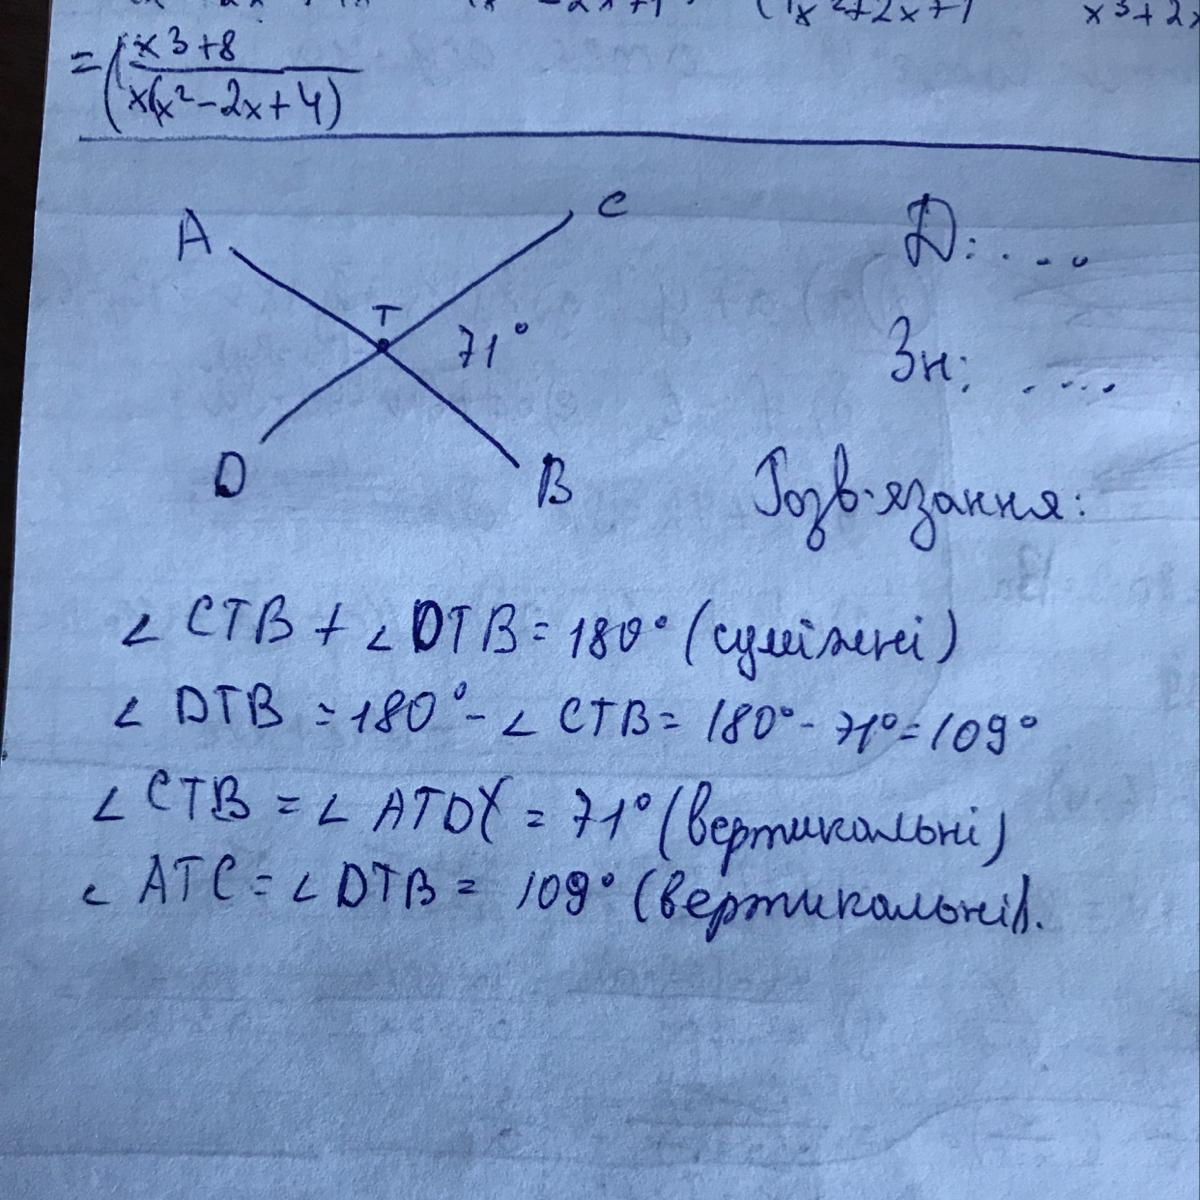 = (x3+8
x(x²-2x+4)
A
C
T
71°
D
B
Д: ....
Зн: ....
Розв'язання:
∠ CTB + ∠ DTB = 180° (суміжні)
∠ DTB = 180° - ∠ CTB = 180° - 71° = 109°
∠ CTB = ∠ ATD = 71° (вертикальні)
∠ ATC = ∠ DTB = 109° (вертикальні).